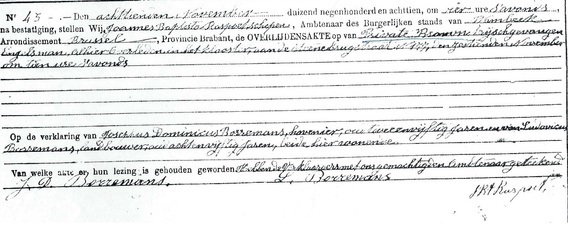 N° 45 - Den achttienden November duizend negenhonderd en achttien, om vier ure 's avonds
na bestatiging, stellen Wij Joannes Baptista Raspoet schepen, Ambtenaar des Burgerlijken stands van
Arrondissement Brussel, Provincie Brabant, de OVERLIJDENSAKTE op van Private Brown krijgsgevangen
Engelsman, alhier overleden in het klooster aan de straat N. den zestienden November
om tien ure 's avonds
Op de verklaring van Josephus Dominicus Borremans, hovenier, oud tweeenvijftig jaren en van Ludovicus
Borremans, landbouwer, oud achtenvijftig jaren, beide hier wonende.
Van welke akte er hun lezing is gehouden geworden. Hebben de verklaarders met ons gemachtigden Ambtenaar geteekend
J. D. Borremans. L. Borremans
J Bt Raspoet.